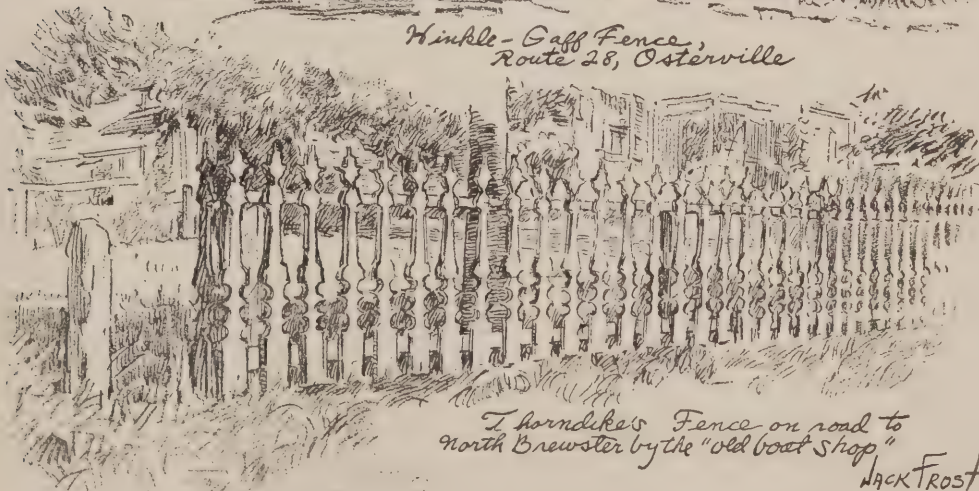 Winkle-Gaff Fence,
Route 28, Osterville
Thorndike's Fence on road to
North Brewster by the "old boat shop"
JACK FROST